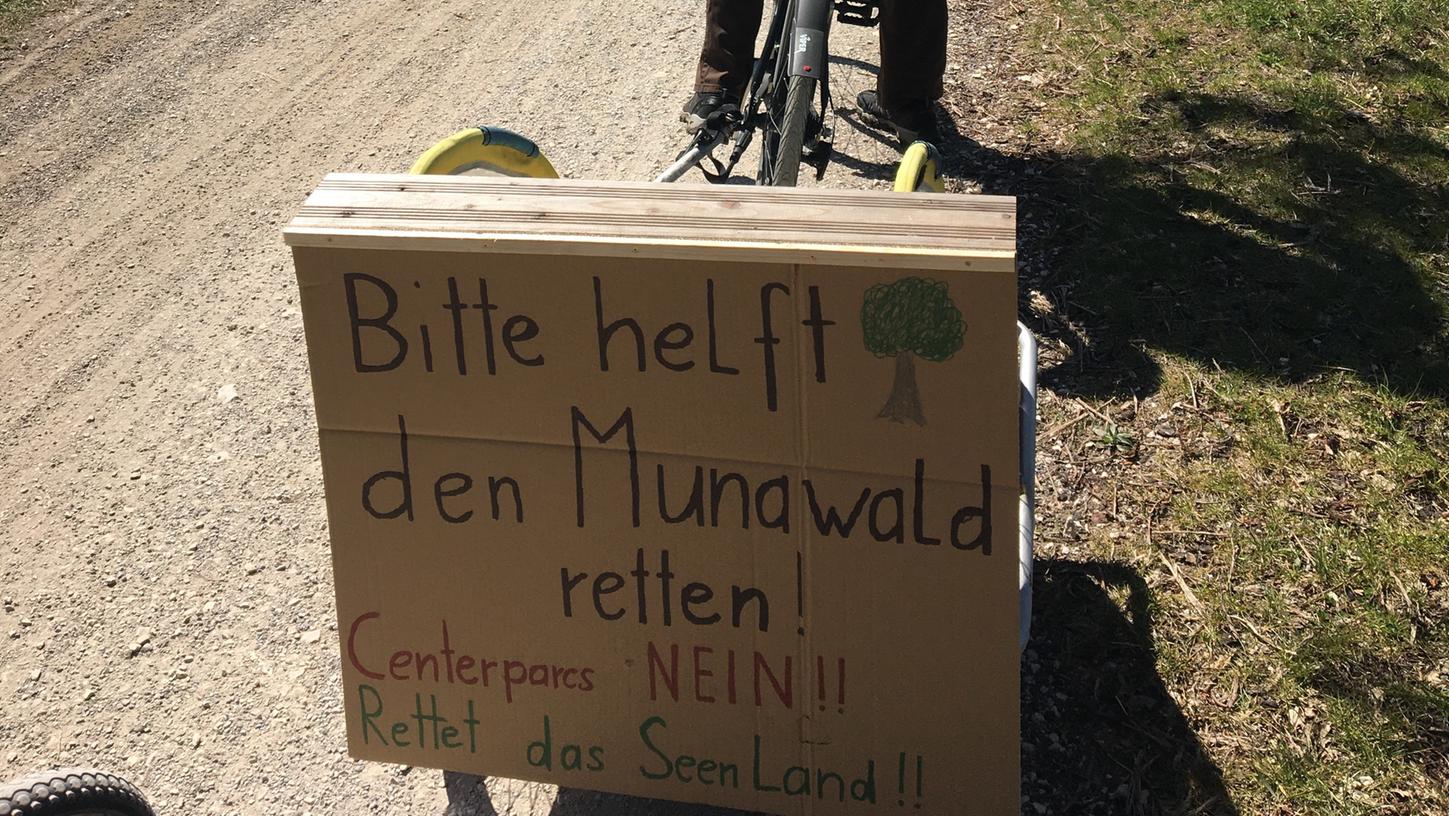 VIPER
Bitte helft
den Munawald
retten!
Centerparcs NEIN!!
Rettet das SeenLand!!